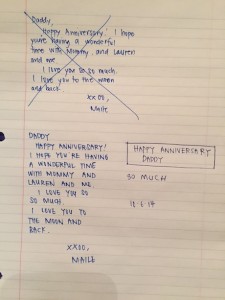 Daddy,
Happy Anniversary! I hope
you're having a wonderful
time with Mommy and Lauren
and me.
I love you so so much.
I love you to the moon
and back.
xxoo,
Maile
DADDY
HAPPY ANNIVERSARY!
I HOPE YOU'RE HAVING
A WONDERFUL TIME
WITH MOMMY AND
LAUREN AND ME.
I LOVE YOU SO
SO MUCH.
I LOVE YOU TO
THE MOON AND
BACK.
XXOO,
MAILE
HAPPY ANNIVERSARY
DADDY
SO MUCH